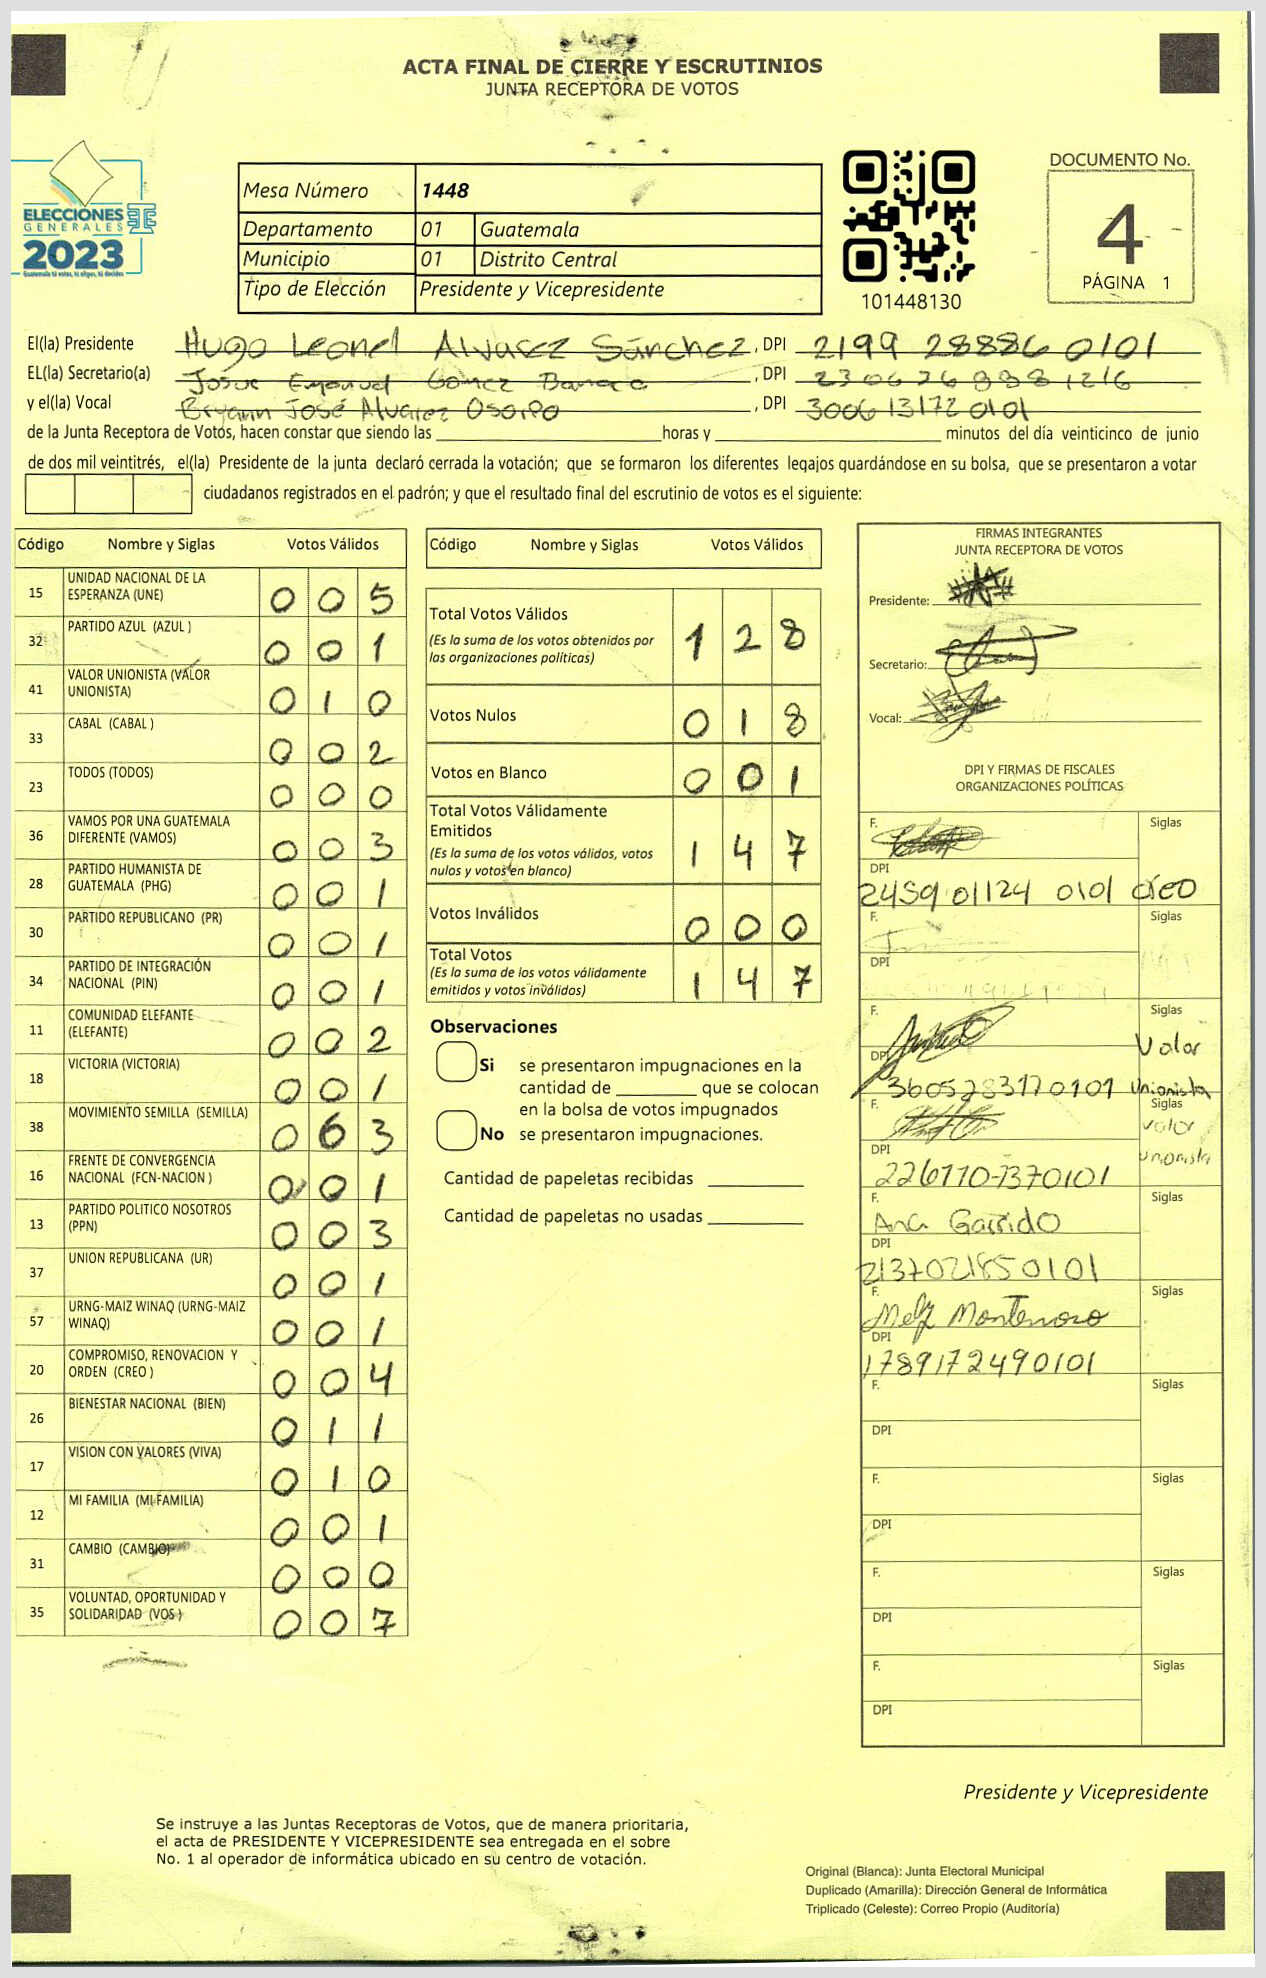 ACTA FINAL DE CIERRE Y ESCRUTINIOS
JUNTA RECEPTORA DE VOTOS
ELECCIONES
GENERALES
2023
Guatemala tú votas, tú eliges, tú decides
Mesa Número 1448
Departamento 01 Guatemala
Municipio 01 Distrito Central
Tipo de Elección Presidente y Vicepresidente
101448130
DOCUMENTO No.
4
PÁGINA 1
El(la) Presidente Hugo Leonel Alvarez Sánchez, DPI 2199 28886 0101
EL(la) Secretario(a) Josue Emanuel Gómez, DPI
y el(la) Vocal Bryann José Alvarez Osorio, DPI 3006 13172 0101
de la Junta Receptora de Votos, hacen constar que siendo las horas y minutos del día veinticinco de junio
de dos mil veintitrés, el(la) Presidente de la junta declaró cerrada la votación; que se formaron los diferentes legajos guardándose en su bolsa, que se presentaron a votar
ciudadanos registrados en el padrón; y que el resultado final del escrutinio de votos es el siguiente:
Código Nombre y Siglas Votos Válidos
15 UNIDAD NACIONAL DE LA
ESPERANZA (UNE) 0 0 5
32 PARTIDO AZUL (AZUL ) 0 0 1
41 VALOR UNIONISTA (VALOR
UNIONISTA) 0 1 0
33 CABAL (CABAL ) 0 0 2
23 TODOS (TODOS) 0 0 0
36 VAMOS POR UNA GUATEMALA
DIFERENTE (VAMOS) 0 0 3
28 PARTIDO HUMANISTA DE
GUATEMALA (PHG) 0 0 1
30 PARTIDO REPUBLICANO (PR) 0 0 1
34 PARTIDO DE INTEGRACIÓN
NACIONAL (PIN) 0 0 1
11 COMUNIDAD ELEFANTE
(ELEFANTE) 0 0 2
18 VICTORIA (VICTORIA) 0 0 1
38 MOVIMIENTO SEMILLA (SEMILLA) 0 6 3
16 FRENTE DE CONVERGENCIA
NACIONAL (FCN-NACION ) 0 0 1
13 PARTIDO POLITICO NOSOTROS
(PPN) 0 0 3
37 UNION REPUBLICANA (UR) 0 0 1
57 URNG-MAIZ WINAQ (URNG-MAIZ
WINAQ) 0 0 1
20 COMPROMISO, RENOVACION Y
ORDEN (CREO ) 0 0 4
26 BIENESTAR NACIONAL (BIEN) 0 1 1
17 VISION CON VALORES (VIVA) 0 1 0
12 MI FAMILIA (MI FAMILIA) 0 0 1
31 CAMBIO (CAMBIO) 0 0 0
35 VOLUNTAD, OPORTUNIDAD Y
SOLIDARIDAD (VOS ) 0 0 7
Código Nombre y Siglas Votos Válidos
Total Votos Válidos 1 2 8
(Es la suma de los votos obtenidos por
las organizaciones políticas)
Votos Nulos 0 1 8
Votos en Blanco 0 0 1
Total Votos Válidamente
Emitidos 1 4 7
(Es la suma de los votos válidos, votos
nulos y votos en blanco)
Votos Inválidos 0 0 0
Total Votos 1 4 7
(Es la suma de los votos válidamente
emitidos y votos inválidos)
Observaciones
Si se presentaron impugnaciones en la
cantidad de que se colocan
en la bolsa de votos impugnados
No se presentaron impugnaciones.
Cantidad de papeletas recibidas
Cantidad de papeletas no usadas
FIRMAS INTEGRANTES
JUNTA RECEPTORA DE VOTOS
Presidente:
Secretario:
Vocal:
DPI Y FIRMAS DE FISCALES
ORGANIZACIONES POLÍTICAS
F. Siglas
DPI
2459 01124 0101 creo
F. Siglas
DPI
F. Siglas
DPI Valor
3605283170101 Unionista
F. Siglas
valor
DPI unionista
F. Siglas
Ana Garrido
DPI
2137021850101
F. Siglas
DPI
1789172490101
F. Siglas
DPI
F. Siglas
DPI
F. Siglas
DPI
F. Siglas
DPI
Presidente y Vicepresidente
Se instruye a las Juntas Receptoras de Votos, que de manera prioritaria,
el acta de PRESIDENTE Y VICEPRESIDENTE sea entregada en el sobre
No. 1 al operador de informática ubicado en su centro de votación.
Original (Blanca): Junta Electoral Municipal
Duplicado (Amarilla): Dirección General de Informática
Triplicado (Celeste): Correo Propio (Auditoría)